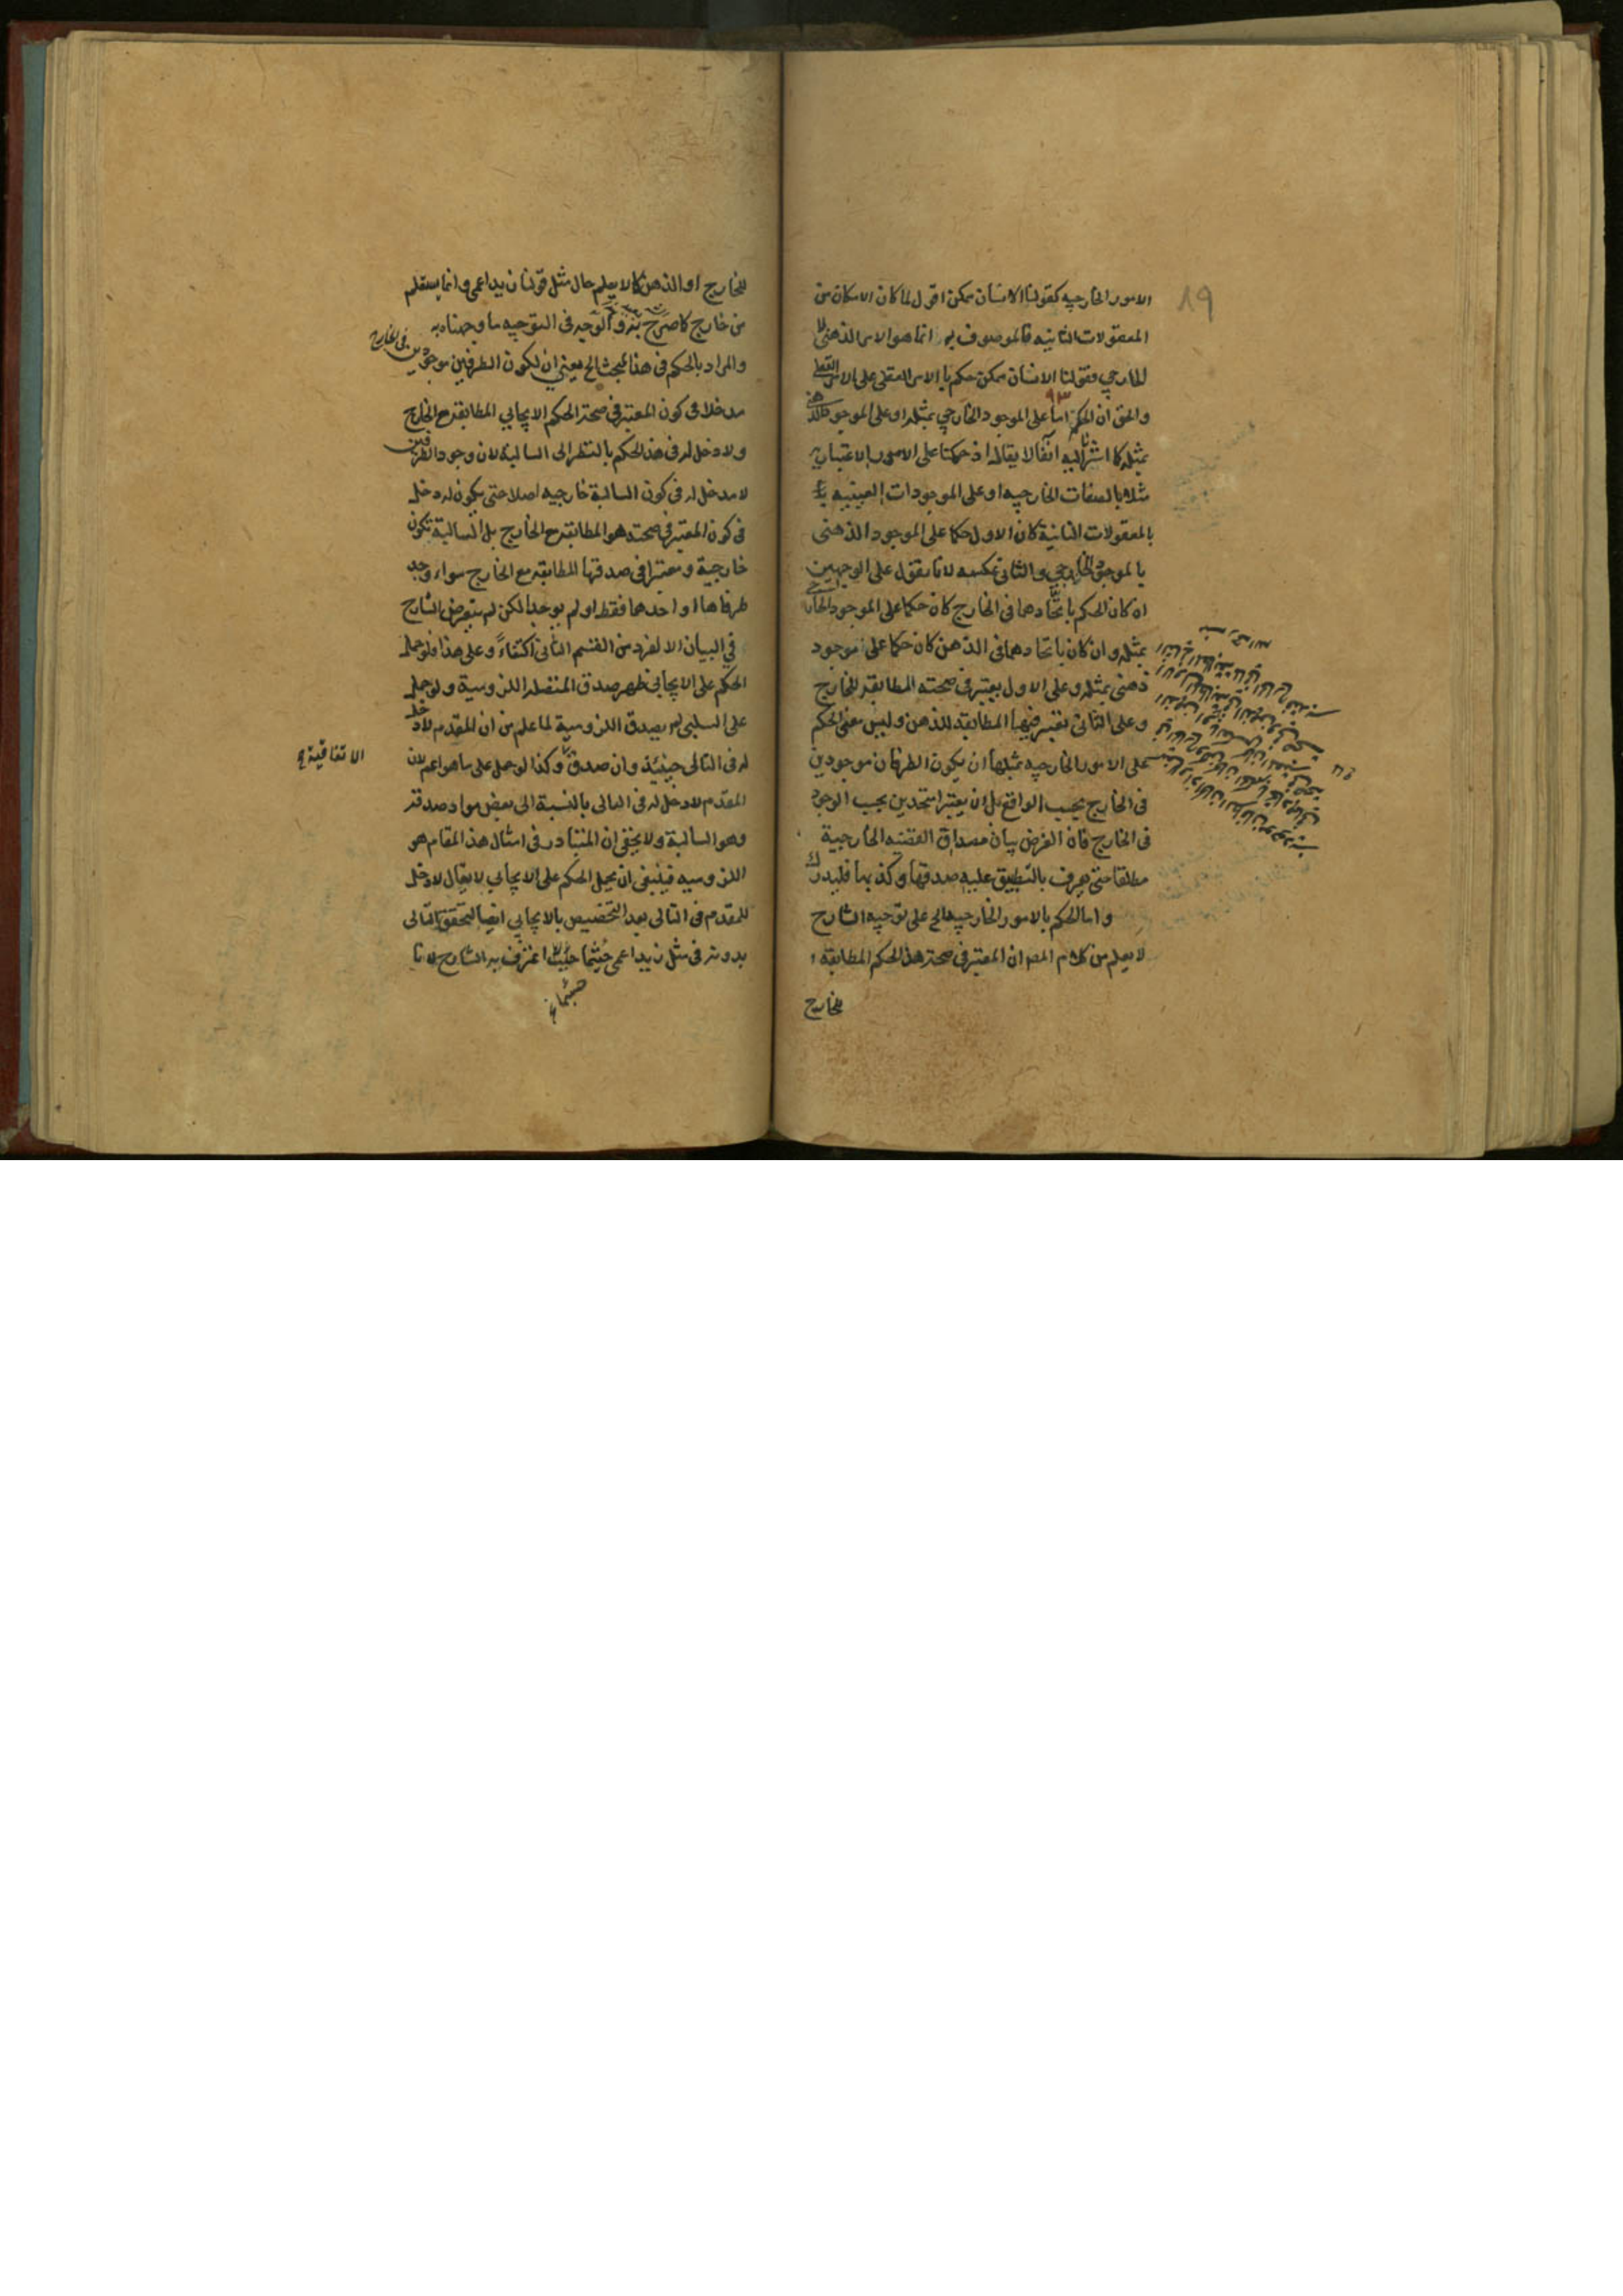 ٨٩
الامور الخارجيه كقولنا الانسان ممكن اقول لما كان الامكان من
المعقولات الثانيه فالموصوف به انما هو الامر الذهنى لا
الخارجي فقولنا الانسان ممكن حكم بالامر العقلى على الامر العقلى
والحق ان الحكم اما على الموجود الخارجي بمثله او على الموجود الذهنى
بمثله كما اشرنا اليه آنفا لا يقال اذ حكمنا على الامور الاعتباريه
مثلا بالصفات الخارجيه او على الموجودات العينيه
بالمعقولات الثانية كان الاول حكما على الموجود الذهنى
بالموجود الخارجي والثانى عكسه لانا نقول على الوجهين
ان كان الحكم باتحادهما فى الخارج كان حكما على الموجود الخارجي
بمثله وان كان باتحادهما فى الذهن كان حكما على موجود
ذهنى بمثله وعلى الاول يعتبر فى صحته المطابقه للخارج
وعلى الثانى تعتبر فيها المطابقه للذهن وليس معنى الحكم
على الامور الخارجيه بمثلها ان يكون الطرفان موجودين
فى الخارج بحسب الواقع بل ان يعتبرا متحدين بحسب الوجود
فى الخارج فان الغرض بيان مصداق القضيه الخارجية
مطلقا حتى يعرف بالتطبيق عليه صدقها وكذبها فليدرك
واما الحكم بالامور الخارجيه الخ على توجيه الشارح
لا يعلم من كلام المص ان المعتبر فى صحة هذا الحكم المطابقة
للخارج
للخارج او الذهن كما لا يعلم حال مثل قولنا زيد اعمى وانما يستعلم
من خارج كما صرح به والوجه فى التوجيه ما وجهناه به
والمراد بالحكم فى هذا المبحث الخ يعنى ان لكون الطرفين موجودين فى الخارج
مدخلا فى كون المعتبر فى صحة الحكم الايجابي المطابقة مع الخارج
ولا دخل له فى هذا الحكم بالنظر الى السالبة لان وجود الطرفين
لا مدخل له فى كون السالبة خارجيه اصلا حتى يكون له دخل
فى كون المعتبر فى صحته هو المطابقة مع الخارج بل السالبة تكون
خارجية ومعتبرا فى صدقها المطابقه مع الخارج سواء وجد
طرفاها او احدهما فقط او لم يوجدا لكن لم يتعرض الشارح
فى البيان الا لفرد من القسم الثانى اكتفاءً وعلى هذا فلو حمل
الحكم على الايجابي ظهر صدق المنفصله اللزومية ولو حمل
على السلبى لم يصدق اللزومية لما علم من ان المقدم لا دخل
له فى التالى حينئذ وان صدق وكذا لو حمل على ما هو اعم لان
الاتفاقية
المقدم لا دخل له فى التالى بالنسبة الى بعض مواد صدقه
وهو السالبة ولا يخفى ان المتبادر فى امثال هذا المقام هو
اللزوميه فينبغى ان يحمل الحكم على الايجابي لا يقال لا دخل
للمقدم فى التالى بعد التخصيص بالايجابي ايضا لتحقق التالى
بدونه فى مثل زيد اعمى حيثما اعترف به الشارح لانا